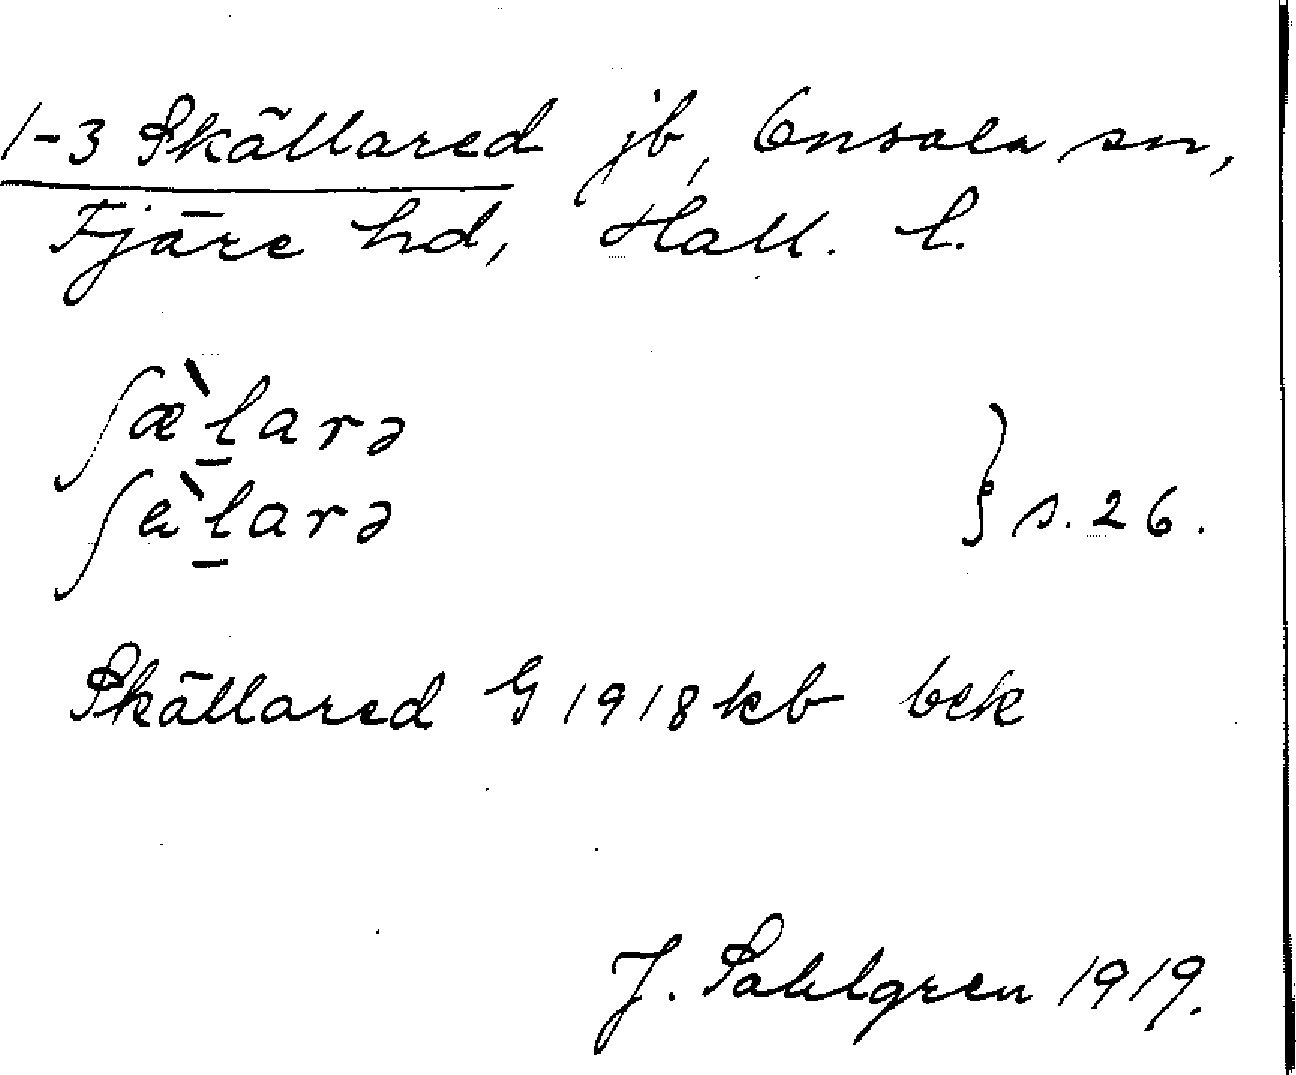 1-3 Skällared jb, Onsala sn,
Fjäre hd, Hall. l.
ʃæ̀l̲arə
ʃɛ̀l̲arə } s. 26.
Skällared G 1918 kb bek
J. Sahlgren 1919.